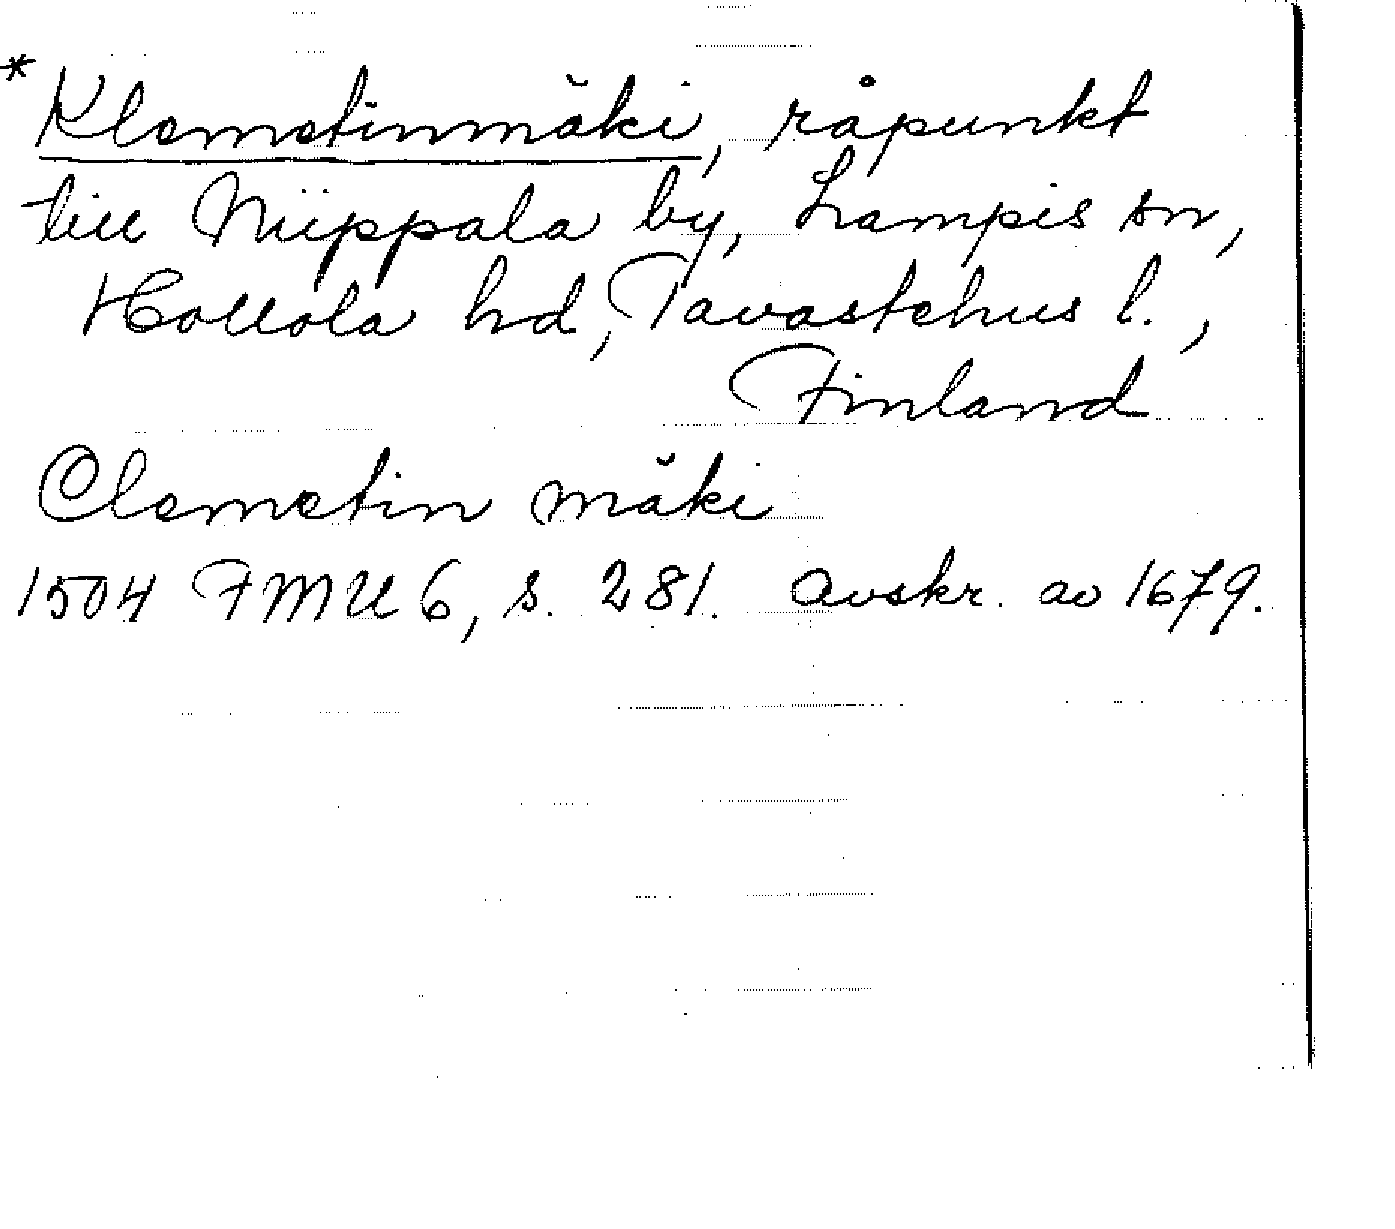 * Klemetinmäki, råpunkt
till Niippala by, Lampis sn,
Hollola hd, Tavastehus l.,
Finland
Clemetin mäki
1504 FMU 6, s. 281. Avskr. av 1679.